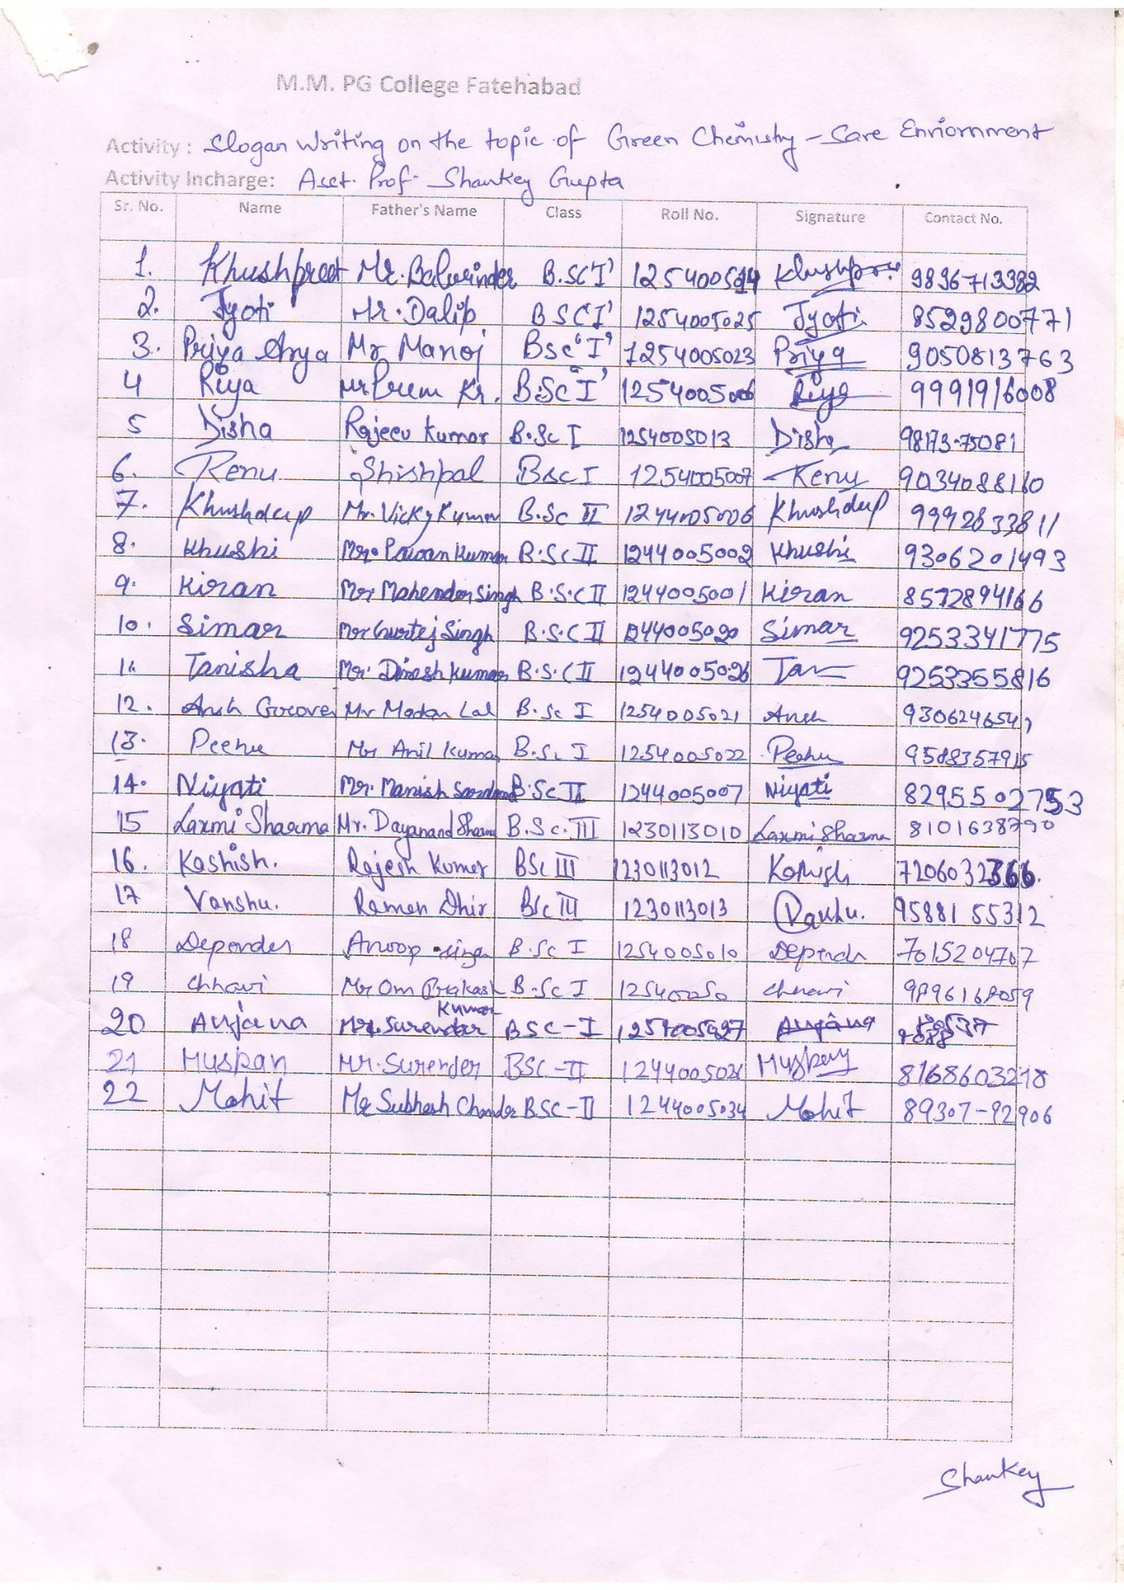 M.M. PG College Fatehabad
Activity : Slogan Writing on the topic of Green Chemistry - Save Enriornment
Activity Incharge: Asst. Prof. Shankey Gupta
Sr. No. Name Father's Name Class Roll No. Signature Contact No.
1. Khushpreet Mr. Balwinder B.SC 'I' Khushpreet 9896713382
2. Jyoti Mr. Dalip BSC I' 1254005025 Jyoti 8529800771
3. Priya Arya Mr Manoj BSC "I" 1254005023 Priya 9050813763
4 Riya Mr Prem Kr. B.Sc I' 1254005006 Riya 9991916008
5 Disha Rajeev Kumar B.Sc I 1254005013 Disha 98173-75081
6. Renu Shishpal BSC I 1254005007 Renu 9034088160
7. Khushdeep Mr. Vicky Kumar B.Sc II 1244005006 Khushdeep 9992833811
8. Khushi Mr. Pawan Kumar B.Sc II 1244005002 Khushi 9306201493
9. Kiran Mr Mahender Singh B.S.C II 1244005001 Kiran 8572894166
10. Simar Mr Gurtej Singh B.S.C II 1244005020 Simar 9253341775
11. Tanisha Mr. Dinesh Kumar B.S.C II 1244005026 Tan 9253355816
12. Ansh Grover Mr Madan Lal B.Sc I 1254005021 Ansh
13. Peehu Mr Anil Kumar B.Sc I 1254005022 Peehu 9588357915
14. Niyati Mr. Manish B.Sc II 1244005007 Niyati 8295502753
15 Laxmi Sharma Mr. Dayanand Sharma B.Sc. III 1230113010 Laxmi Sharma 8101638790
16. Kashish. Rajesh Kumar BSc III 1230113012 Kashish 7206032366.
17 Vanshu. Raman Dhir BSc III 1230113013 Vanshu. 95881 55312
18 Depender Anoop singh B.Sc I 1254005010 Depender 7015204707
19 Chhavi Mr Om Prakash B.Sc I Chhavi 9896168059
20 Anjana Mr. Surender Kumar BSC-I 1254005027 Anjana
21 Muskan Mr. Surender BSC-II Muskan 8168603218
22 Mohit Mr Subhash Chander BSC-II 1244005034 Mohit 89307-92906
Shankey